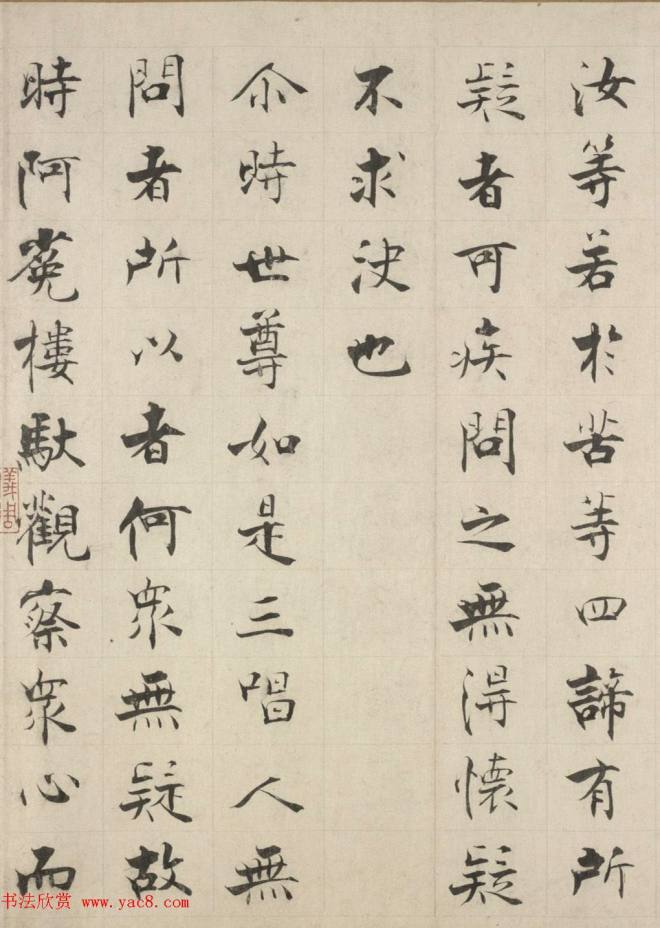 汝等若於苦等四諦有所
疑者可疾問之無得懷疑
不求決也
尒時世尊如是三唱人無
問者所以者何衆無疑故
時阿㝹樓馱觀察衆心而
书法欣赏 www.yac8.com